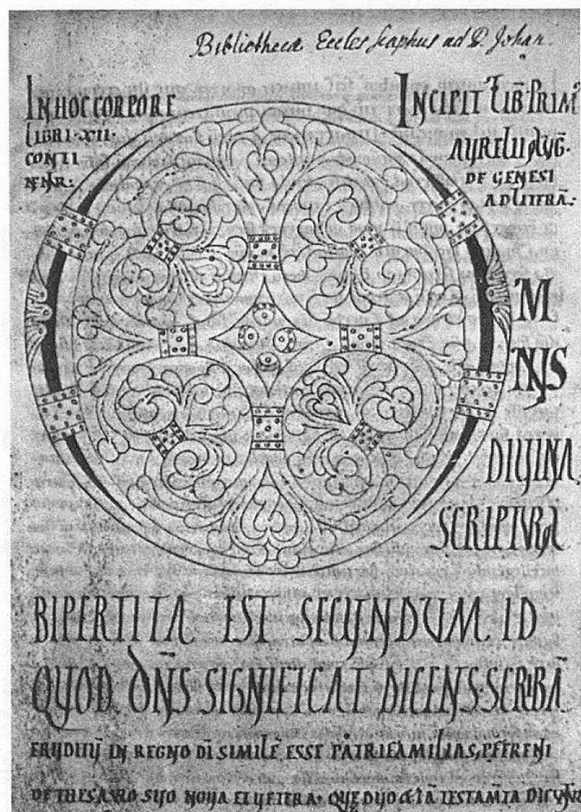 Bibliotheca Eccles Scaphus ad D. Johan.
IN HOC CORPORE
LIBRI · XII ·
CONTI
NENR:
INCIPIT LIB̄ PRIM⁹
AURELII AUG̅·
DE GENESI
AD LITTRĀ:
M
NIS
DIUINA
SCRIPTURA
BIPERTITA EST SECUNDUM ID
QUOD DN̄S SIGNIFICAT DICENS· SCRIBĀ
ERUDITŪ IN REGNO DĪ SIMILĒ ESSE PATRIFAMILIAS, PFERENI
DE THESAURO SUO NOUA ET UETERA· QUE DUO &IĀ TESTAM̄TA DICUN̄